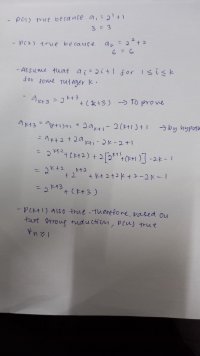 - P(1) true because a₁ = 2¹+1
3 = 3
- P(2) true because a₂ = 2²+2
6 = 6
- Assume that aᵢ = 2i+1 for 1 ≤ i ≤ k
for some integer k.
= aₖ₊₃ = 2ᵏ⁺³ + (k+3) → To prove
= aₖ₊₂ + 2aₖ₊₁ - 2k - 2 + 1
= 2ᵏ⁺² + (k+2) + 2[2ᵏ⁺¹ + (k+1)] - 2k - 1
= 2ᵏ⁺² + 2ᵏ⁺² + k+2 + 2k + 2 - 2k - 1
= 2ᵏ⁺³ + (k+3)
- P(k+1) also true. therefore, based on
strong induction, P(n) true
∀n ≥ 1